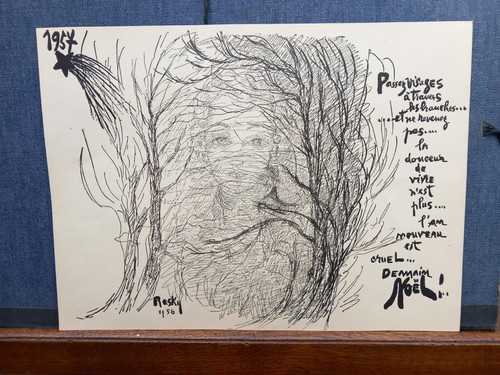 1957
Passez Visages
à travers
les branches...
... et ne revenez
pas....
la
douceur
de
vivre
n'est
plus....
l'an
nouveau
est
cruel...
Demain
Noël!..
Rasky
1956